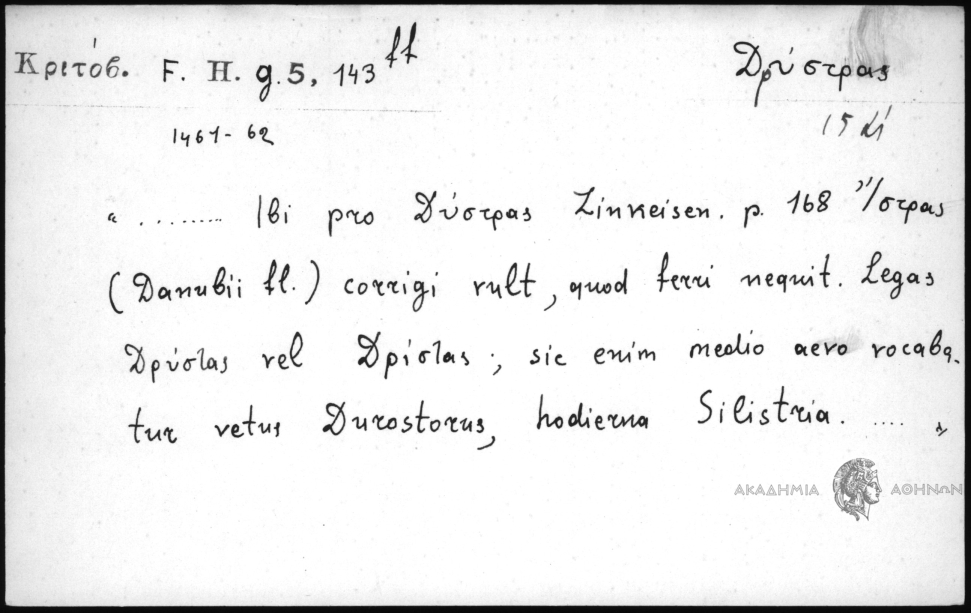 Κριτόβ. F. H. g. 5, 143 ff
Δρύστρας
1461-62
15 αἱ
" ......... Ibi pro Δύστρας Zinkeisen. p. 168 Ἴστρας
(Danubii fl.) corrigi vult, quod ferri nequit. Legas
Δρύσlας vel Δρίσlας ; sic enim medio aevo vocaba-
tur vetus Durostorus, hodierna Silistria. .... "
ΑΚΑΔΗΜΙΑ ΑΘΗΝΩΝ